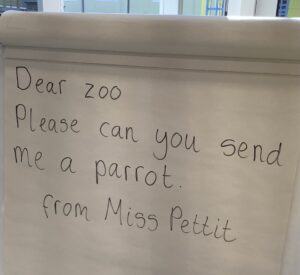 Dear zoo
Please can you send
me a parrot.
from Miss Pettit